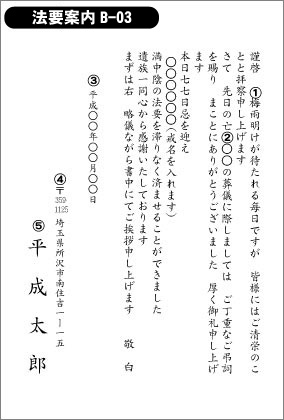 法要案内 B-03
謹啓 ①梅雨明けが待たれる毎日ですが 皆様にはご清栄のこ
とと拝察申し上げます
さて 先日の亡②○○の葬儀に際しましては ご丁重なご弔詞
を賜り まことにありがとうございました 厚く御礼申し上げ
ます
本日七七日忌を迎え
○○○○○○(戒名を入れます)
満中陰の法要を滞りなく済ませることができました
遺族一同心から感謝いたしております
まずは右 略儀ながら書中にてご挨拶申し上げます 敬白
③平成○○年○○月○○日
④〒359-1125 埼玉県所沢市南住吉一ー一五
⑤平成太郎